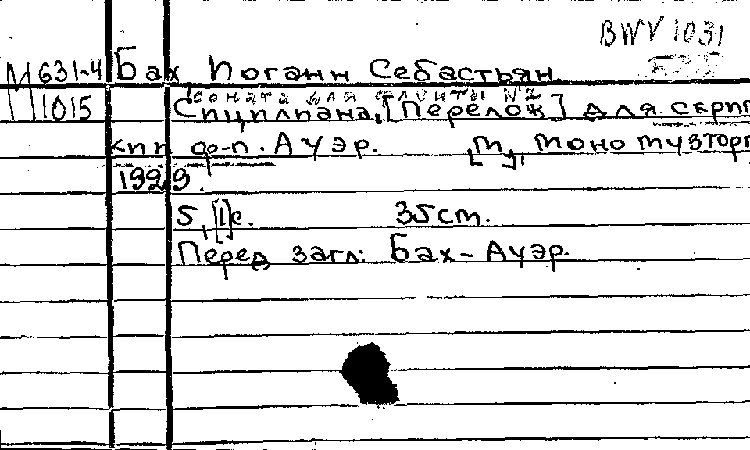 BWV 1031
М 631-4 Бах Иоганн Себастьян
Соната для флейты №2
М 1015 Сицилиана, [Перелож] для скрип
ки и ф-п. Ауэр. [м], моно музторг
1929.
5, [1]с. 35см.
Перед загл: Бах-Ауэр.